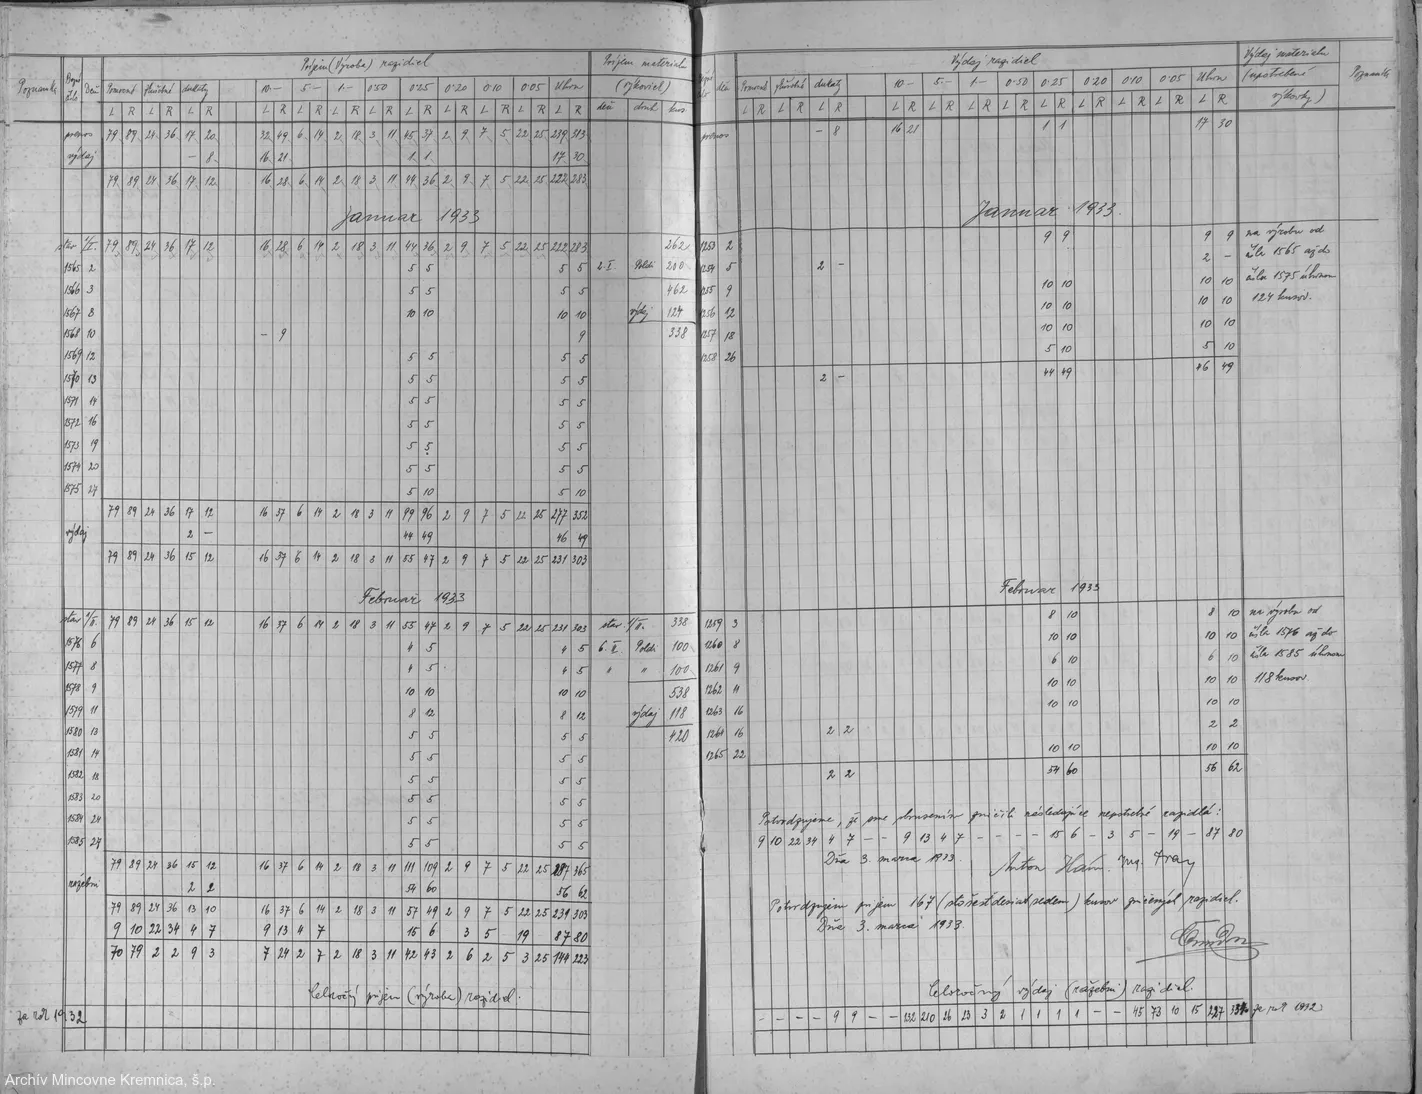 Príjem (Výroba) razidiel
Príjem materialu
(výkoviek)
Poznamka
deň
Pomocné
dukáty
10-
5-
1-
1·50
0·25
0·20
0·10
0·05
Úhrn
L R L R L R
deň druh kus
prenos 79 89 24 36 17 20 32 49 6 14 2 18 3 11 45 37 2 9 7 5 22 25 239 313
výdaj - 8 16 21 1 1 17 30
79 89 24 36 17 12 16 28 6 14 2 18 3 11 44 36 2 9 7 5 22 25 222 283
Januar 1933
stav 1/I. 79 89 24 36 17 12 16 28 6 14 2 18 3 11 44 36 2 9 7 5 22 25 222 283 262
1565 2 5 5 5 5 2. I. Poldi 200
1566 3 5 5 5 5 462
1567 8 10 10 10 10 výdaj 124
1568 10 - 9 9 338
1569 12 5 5 5 5
1570 13 5 5 5 5
1571 14 5 5 5 5
1572 16 5 5 5 5
1573 19 5 5 5 5
1574 20 5 5 5 5
1575 27 5 10 5 10
79 89 24 36 17 12 16 37 6 14 2 18 3 11 99 96 2 9 7 5 22 25 277 352
výdaj 2 - 44 49 46 49
79 89 24 36 15 12 16 37 6 14 2 18 3 11 55 47 2 9 7 5 22 25 231 303
Februar 1933
stav 1/II. 79 89 24 36 15 12 16 37 6 14 2 18 3 11 55 47 2 9 7 5 22 25 231 303 stav 1/II. 338
1576 6 4 5 4 5 6. II. Poldi 100
1577 8 4 5 4 5 " " 100
1578 9 10 10 10 10 538
1579 11 8 12 8 12 výdaj 118
1580 13 5 5 5 5 420
1581 14 5 5 5 5
1582 18 5 5 5 5
1583 20 5 5 5 5
1584 24 5 5 5 5
1585 27 5 5 5 5
79 89 24 36 15 12 16 37 6 14 2 18 3 11 111 109 2 9 7 5 22 25 287 365
razebni 2 2 54 60 56 62
79 89 24 36 13 10 16 37 6 14 2 18 3 11 57 49 2 9 7 5 22 25 231 303
9 10 22 34 4 7 9 13 4 7 15 6 3 5 19 87 80
70 79 2 2 9 3 7 24 2 7 2 18 3 11 42 43 2 6 2 5 3 25 144 223
Celoročný príjem (výroba) razidiel.
za rok 1932
Výdaj razidiel
Výdaj materialu
(upotrebené
výkovky)
Poznamka
deň
Pomocné
dukaty
10- 5- 1- 0·50 0·25 0·20 0·10 0·05 Úhrn
L R L R L R
prenos - 8 16 21 1 1 17 30
Januar 1933.
1253 2 9 9 9 9 na výrobu od
1254 5 2 - 2 - čísla 1565 až do
1255 9 10 10 10 10 čísla 1575 úhrnom
1256 12 10 10 10 10 124 kusov.
1257 18 10 10 10 10
1258 26 5 10 5 10
2 - 44 49 46 49
Februar 1933
1259 3 8 10 8 10 na výrobu od
1260 8 10 10 10 10 čísla 1576 až do
1261 9 6 10 6 10 čísla 1585 úhrnom
1262 11 10 10 10 10 118 kusov
1263 16 10 10 10 10
1264 16 2 2 2 2
1265 22 10 10 10 10
2 2 54 60 56 62
Potvrdzujeme, že sme brusením zničili následujúce nepotrebné razidlá:
9 10 22 34 4 7 - - 9 13 4 7 - - - - 15 6 - 3 5 - 19 - 87 80
Dňa 3. marca 1933.
Anton Hám.
Potvrdzujem príjem 167 (stošesťdesiatsedem) kusov zničených razidiel.
Dňa 3. marca 1933.
Celoročný výdaj (razebni) razidiel.
- - - - 9 9 - - 132 210 26 23 3 2 1 1 1 1 - - 45 73 10 15 227 334 za rok 1932
Archív Mincovne Kremnica, š.p.